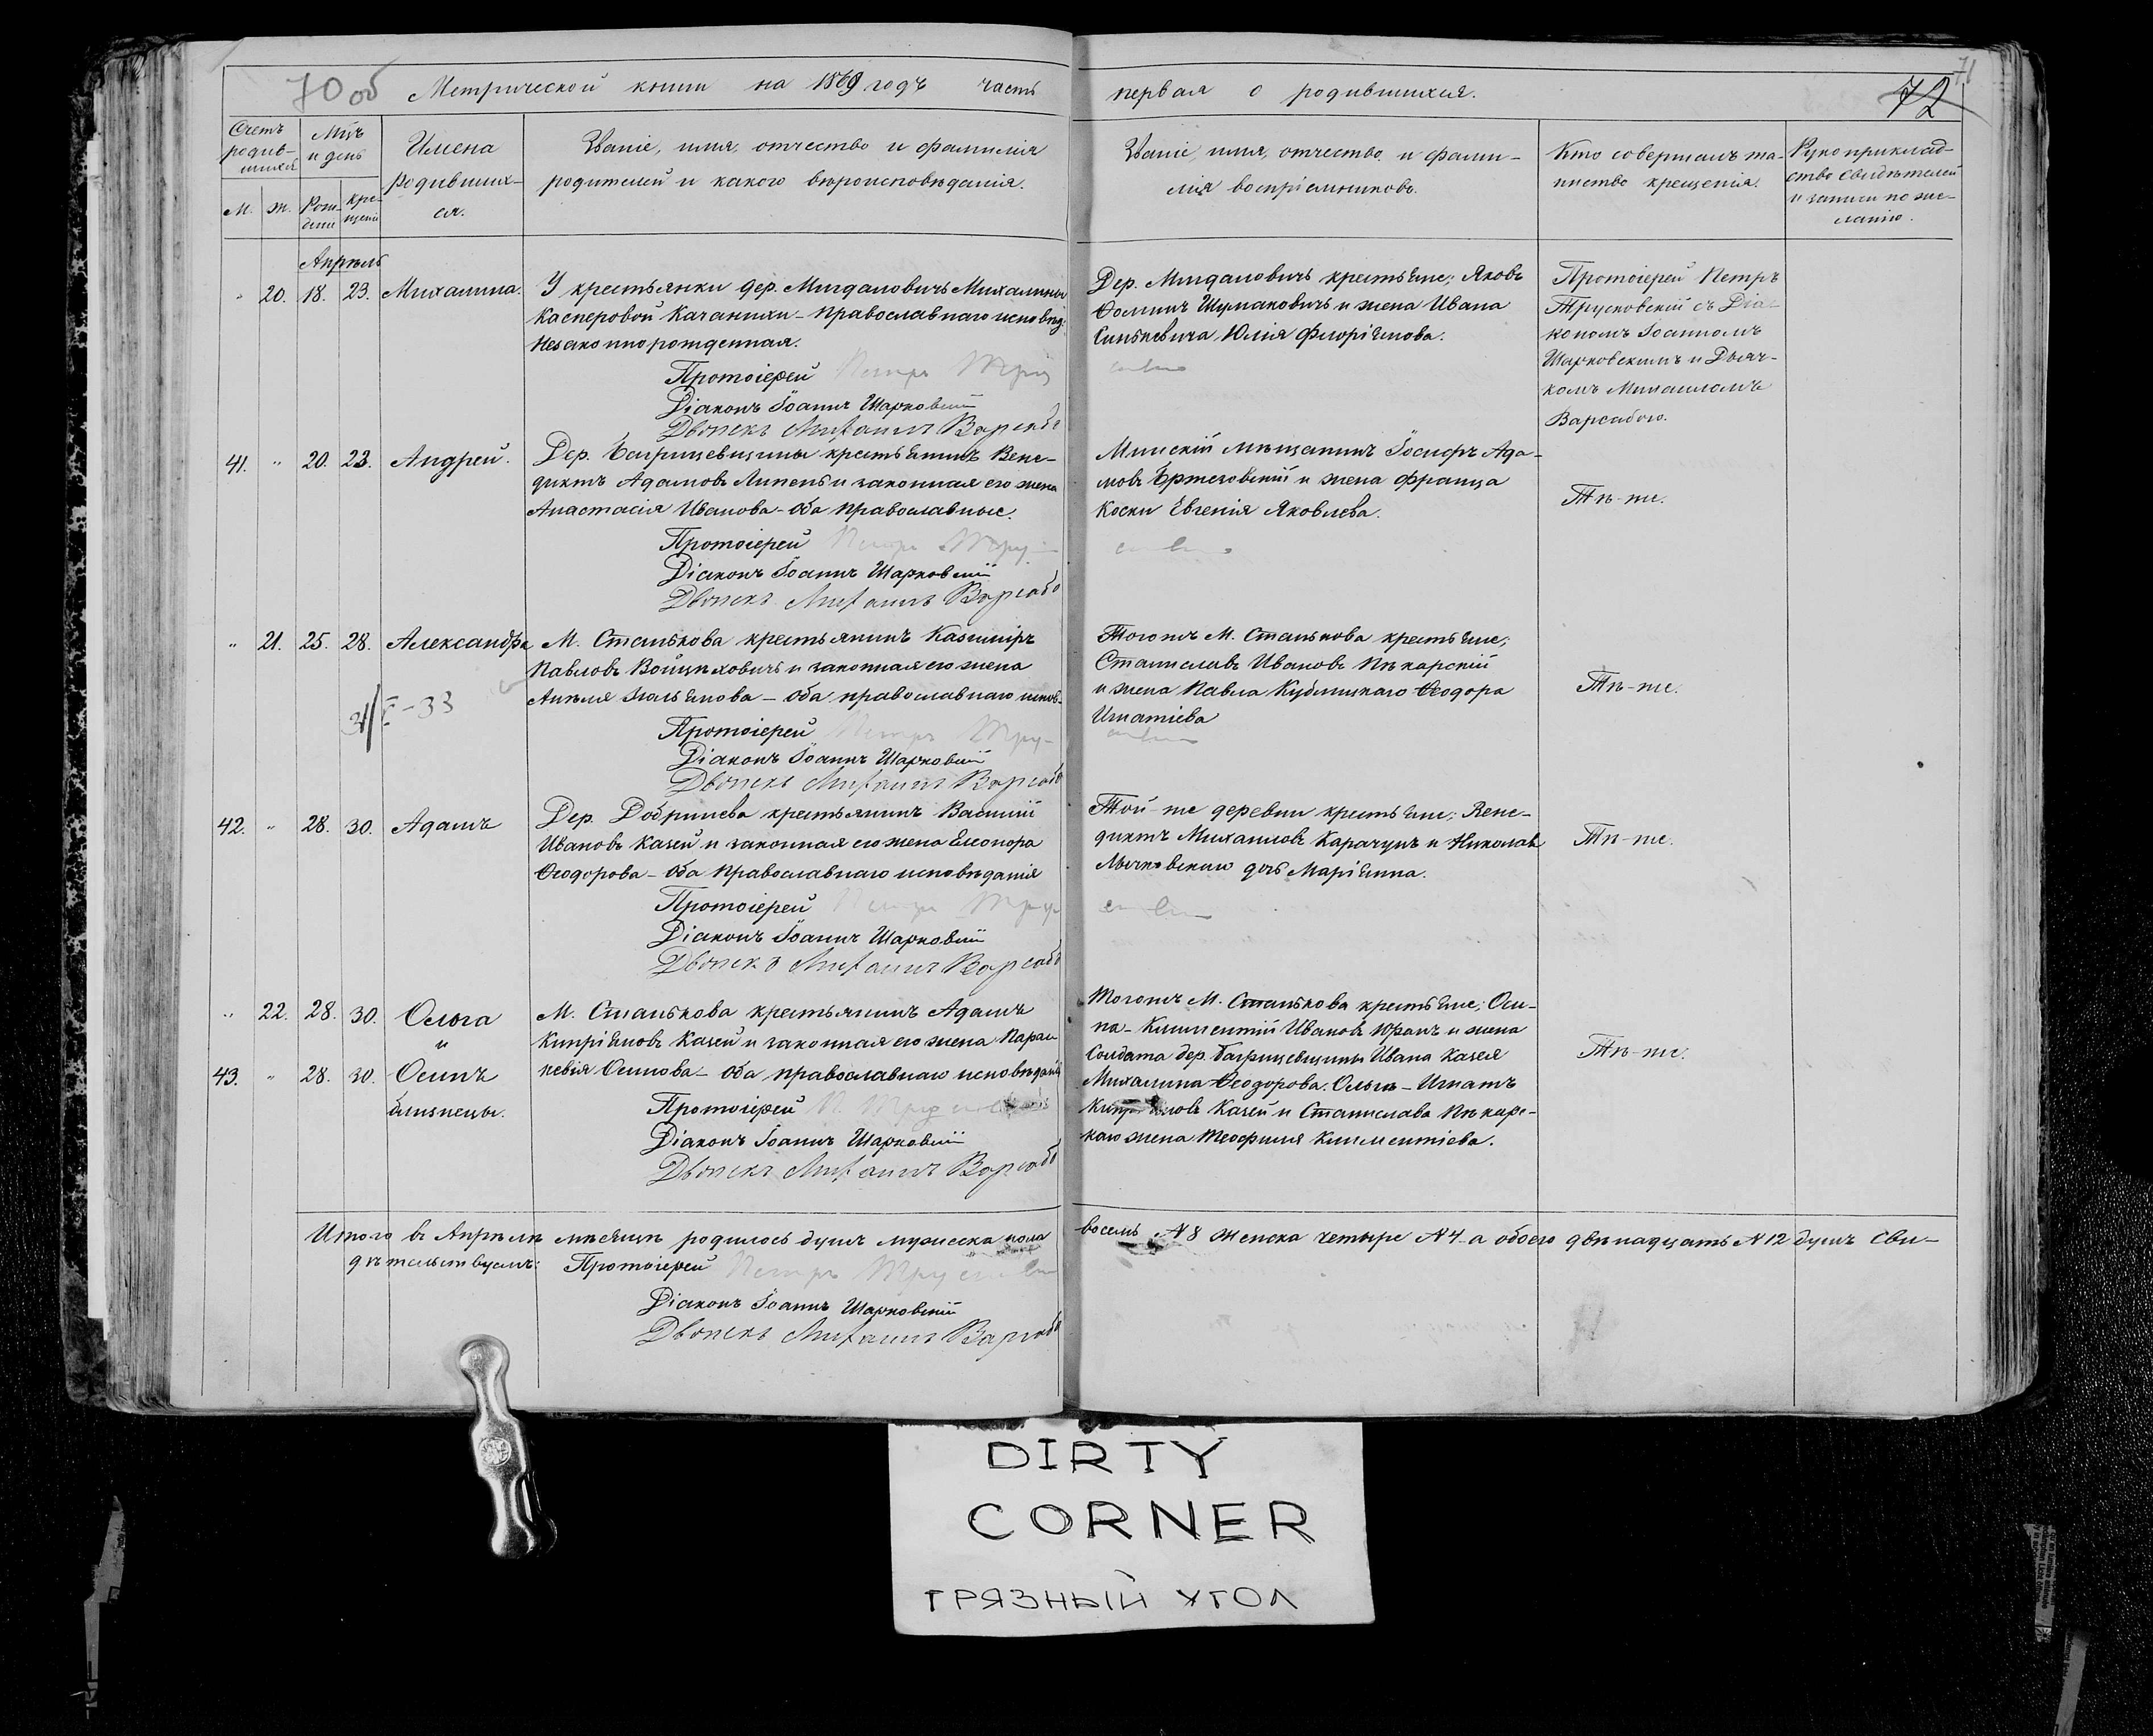 70 об Метрической книги на 1869 годъ часть
первая о родившихся.
71
72
Счетъ родив-шихся
М. Ж.
Мцъ и день
Рож-денія Кре-щенія
Имена родивших-ся.
Званіе, имя, отчество и фамилія
родителей и какого вѣроисповѣданія.
Званіе, имя, отчество и фами-
лія воспріемниковъ.
Кто совершалъ та-
инство крещенія.
Рукоприклад-
ство свидѣтелей
и записи по же-
ланію.
Апрѣль
" 20. 18. 23. Михалина.
У крестьянки дер. Мигдаловичъ Михалины
Касперовой Качанихи - православнаго исповѣд.
Незаконнорожденная.
Протоіерей Петръ
Діаконъ Іоаннъ Шарковскій
Дьячекъ Михаилъ Варсаб
Дер. Мигдаловичъ крестьяне; Яковъ
Ѳоминъ Шумаковичъ и жена Ивана
Синкевича Юлія Флоріянова.
Протоіерей Петръ
Трусковскій съ Діа-
кономъ Іоанномъ
Шарковскимъ и Дьяч-
комъ Михаиломъ
Варсабою.
41. " 20. 23. Андрей.
Дер. Багрицевщины крестьянинъ Вене-
диктъ Адамовъ Липень и законная его жена
Анастасія Иванова - оба православные.
Протоіерей Петръ
Діаконъ Іоаннъ Шарковскій
Дьячекъ Михаилъ Варсаб
Минскій мѣщанинъ Іосифъ Ада-
мовъ Бржезовскій и жена Франца
Коски Евгенія Яковлева.
Тѣ-же.
" 21. 25. 28. Александра
М. Станькова крестьянинъ Казиміръ
Павловъ Войцѣховичъ и законная его жена
Анѣля Ильянова - оба православнаго испов.
Протоіерей Петръ
Діаконъ Іоаннъ Шарковскій
Дьячекъ Михаилъ Варсаб
Тогожъ М. Станькова крестьяне;
Станиславъ Ивановъ Пѣкарскій
и жена Павла Кублицкаго Ѳеодора
Игнатіева
Тѣ-же.
42. " 28. 30. Адамъ
Дер. Добринева крестьянинъ Василій
Ивановъ Казей и законная его жена Елеонора
Ѳеодорова - оба православнаго исповѣданія
Протоіерей Петръ
Діаконъ Іоаннъ Шарковскій
Дьячекъ Михаилъ Варсаб
Той-же деревни крестьяне; Вене-
диктъ Михаиловъ Карачунъ и Николая
Мычковскаго дочь Маріянна.
Тѣ-же.
" 22. 28. 30. Ольга
и
43. " 28. 30. Осипъ
близнецы.
М. Станькова крестьянинъ Адамъ
Кипріяновъ Казей и законная его жена Парас
кевія Осипова - оба православнаго исповѣданія
Протоіерей П.
Діаконъ Іоаннъ Шарковскій
Дьячекъ Михаилъ Варсаб
Тогожъ М. Станькова крестьяне; Оси-
па - Климентій Ивановъ Юранъ и жена
Солдата дер. Багрицевщины Ивана Казея
Михалина Ѳеодорова. Ольги - Игнатъ
Кипріяновъ Казей и Станислава Пѣкарс-
каго жена Теофилія Климентіева.
Тѣ-же.
Итого въ Апрѣлѣ мѣсяцѣ родилось душъ мужеска пола
восемь №8 женска четыре №4 а обоего двѣнадцать №12 душъ Сви-
дѣтельствуемъ: Протоіерей Петръ
Діаконъ Іоаннъ Шарковскій
Дьячекъ Михаилъ Варсаб
DIRTY
CORNER
ГРЯЗНЫЙ УГОЛ